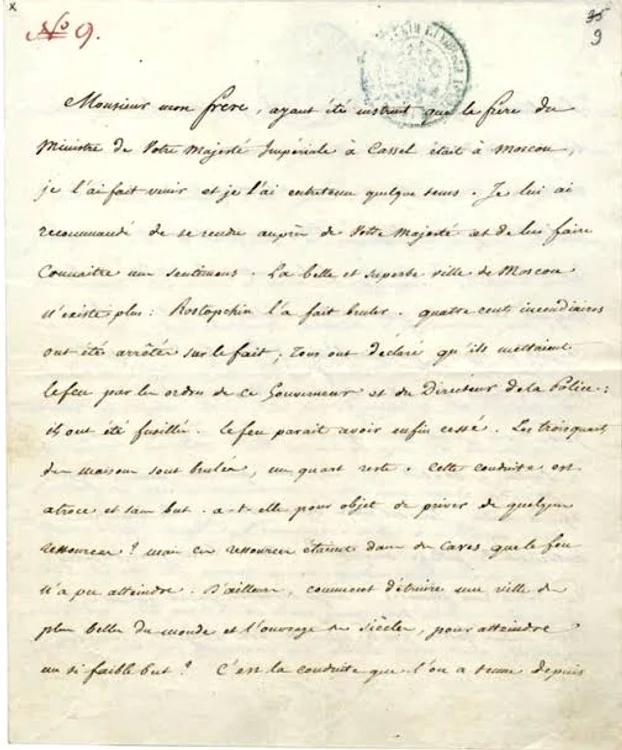 x
No 9.
35
9
Monsieur mon frère, ayant été instruit que le frère du
Ministre de Votre Majesté Impériale à Cassel était à Moscou,
je l'ai fait venir et je l'ai entretenu quelque tems. Je lui ai
recommandé de se rendre auprès de Votre Majesté et de lui faire
Connaitre mes sentimens. La belle et superbe ville de Moscou
n'existe plus: Rostopchin l'a fait bruler. quatre cents incendiaires
ont été arrêtés sur le fait; Tous ont déclaré qu'ils mettaient
le feu par les ordres de ce Gouverneur et du Directeur de la Police:
ils ont été fusillés. Le feu parait avoir enfin cessé. Les trois quarts
des maisons sont brulées, un quart reste. Cette conduite est
atroce et sans but. a-t-elle pour objet de priver de quelques
ressources? mais ces ressources étaient dans des Caves que le feu
n'a pu atteindre. D'ailleurs, comment détruire une ville des
plus belles du monde et l'ouvrage des siècles, pour atteindre
un si faible but? C'est la conduite que l'on a tenue depuis